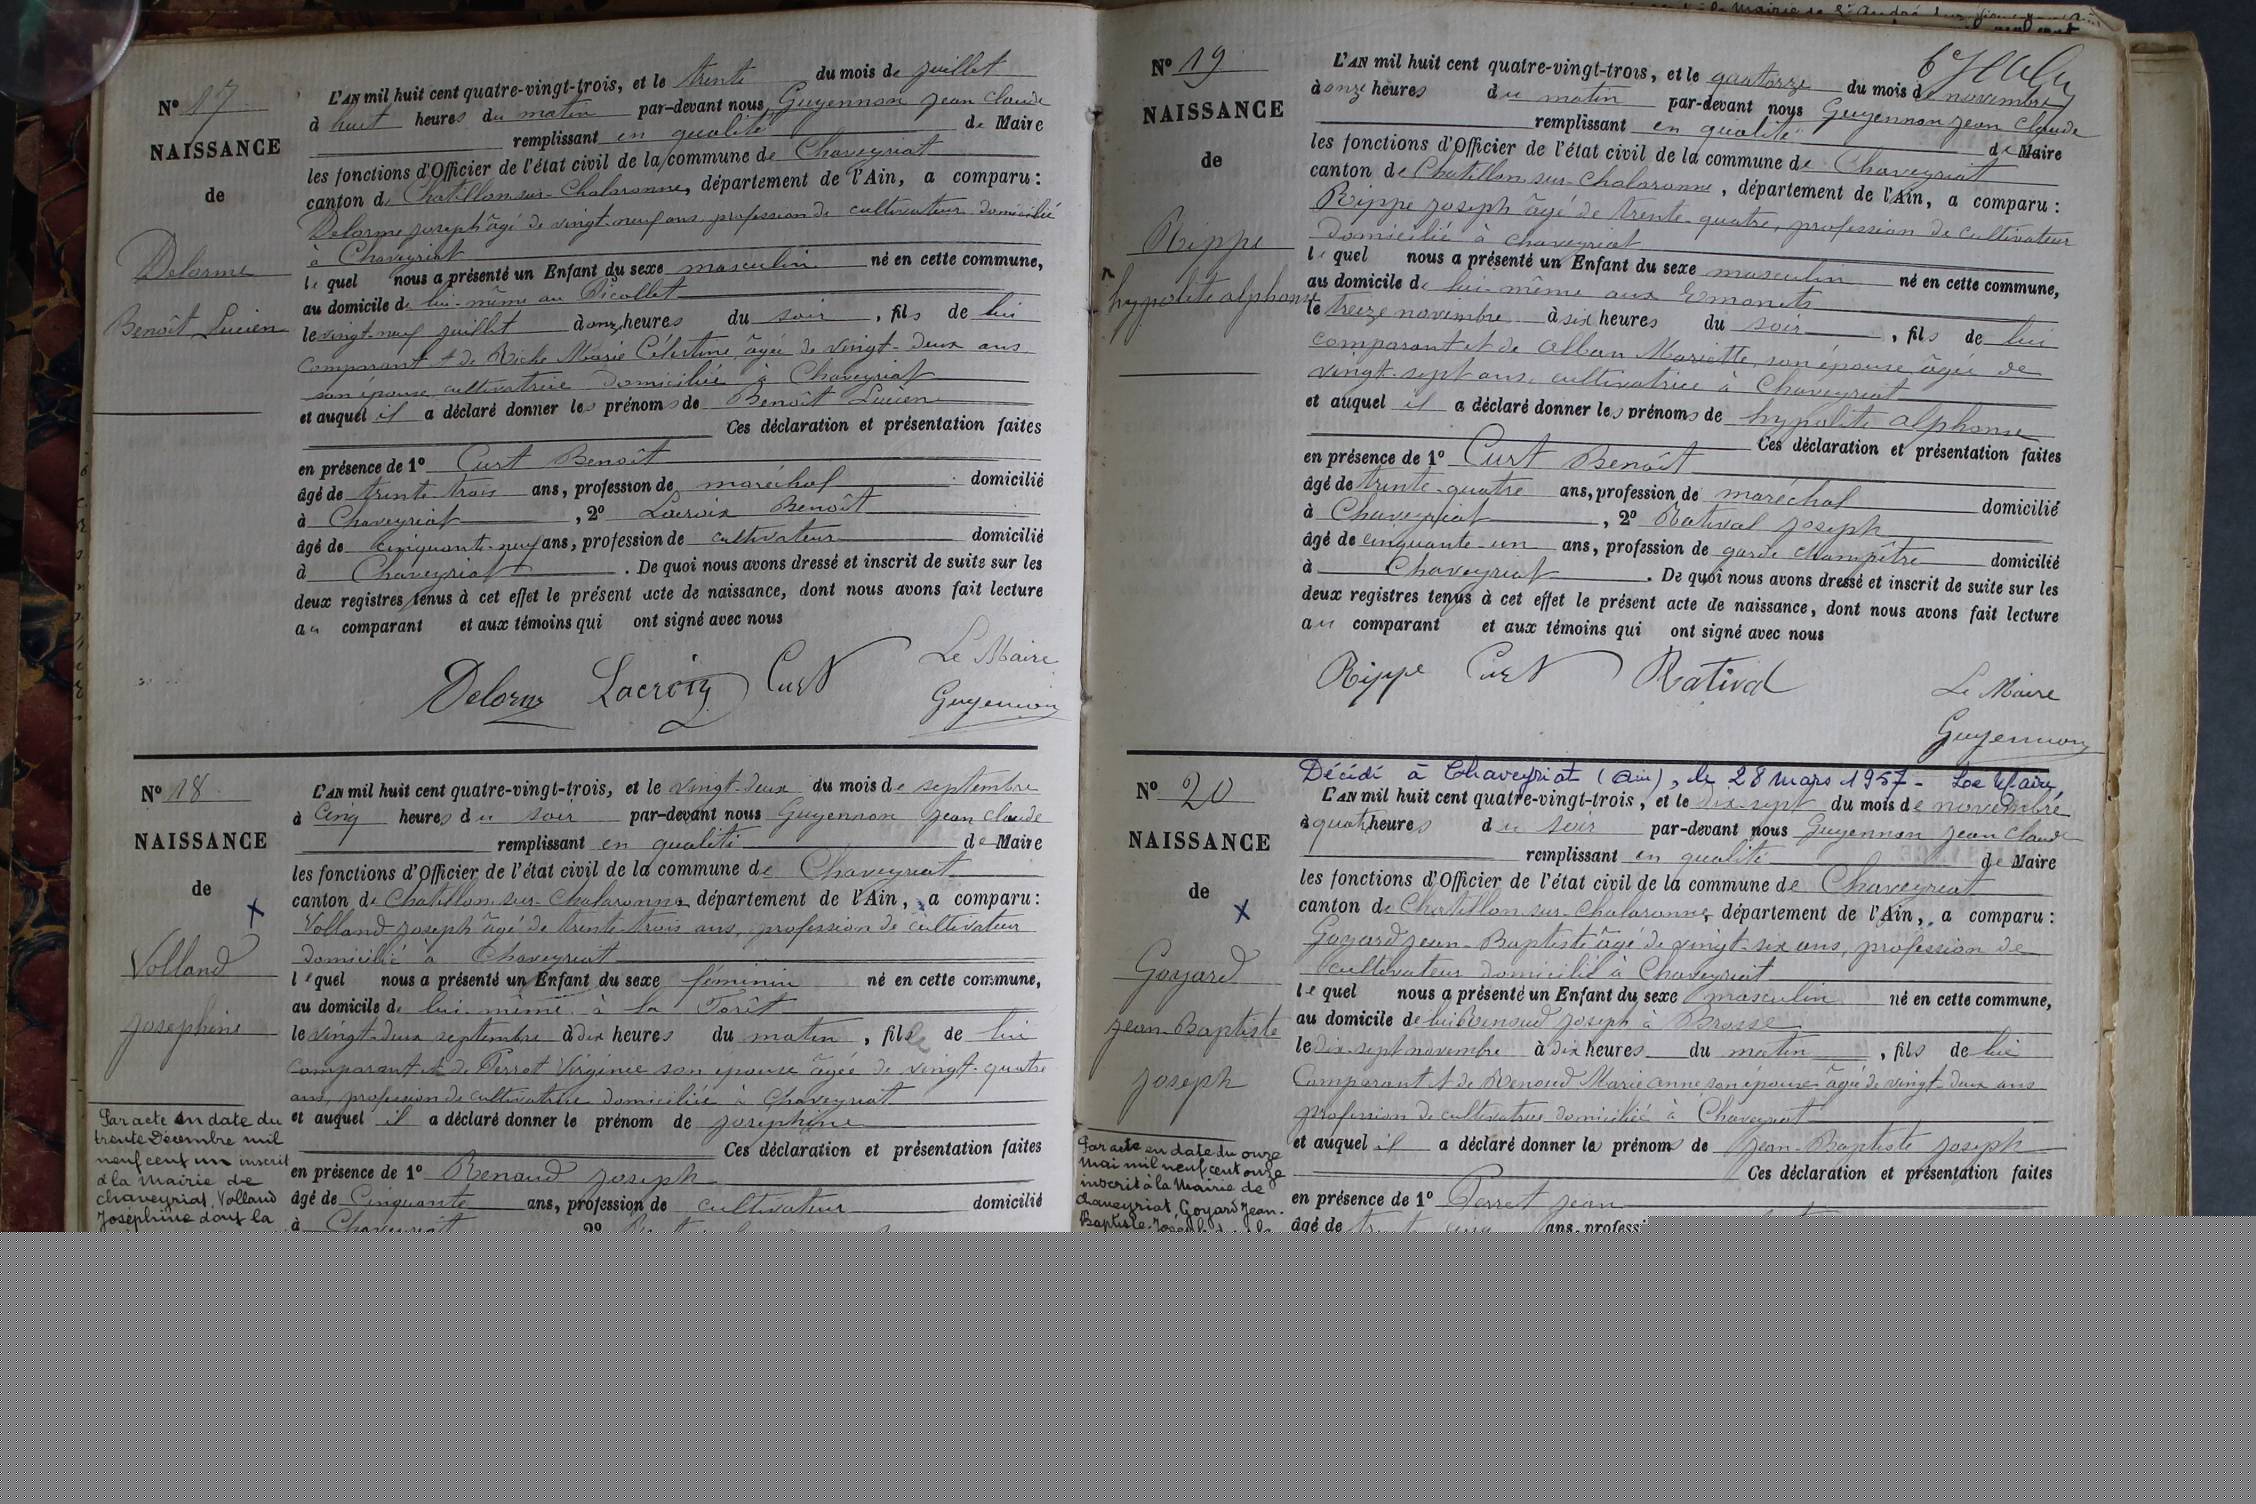 N° 17
NAISSANCE
de
Delorme
Benoît Lucien
L'AN mil huit cent quatre-vingt-trois, et le trente du mois de juillet
à huit heures du matin par-devant nous Guyennon Jean Claude
remplissant en qualité de Maire
les fonctions d'Officier de l'état civil de la commune de Chaveyriat
canton de Chatillon-sur-Chalaronne, département de l'Ain, a comparu :
Delorme Joseph âgé de vingt-neuf ans profession de cultivateur domicilié
à Chaveyriat
lequel nous a présenté un Enfant du sexe masculin né en cette commune,
au domicile de lui-même au Picollet
le vingt-neuf juillet à onze heures du soir, fils de lui
comparant et de Riche Marie Célestine âgée de vingt-deux ans
son épouse cultivatrice domiciliée à Chaveyriat
et auquel il a déclaré donner les prénoms de Benoît Lucien
Ces déclaration et présentation faites
en présence de 1° Curt Benoît
âgé de trente trois ans, profession de maréchal domicilié
à Chaveyriat, 2° Lacroix Benoît
âgé de cinquante-neuf ans, profession de cultivateur domicilié
à Chaveyriat. De quoi nous avons dressé et inscrit de suite sur les
deux registres tenus à cet effet le présent acte de naissance, dont nous avons fait lecture
au comparant et aux témoins qui ont signé avec nous
Delorme Lacroix Curt Le Maire
Guyennon
N° 18
NAISSANCE
de
Volland
Joséphine
Par acte en date du
trente Décembre mil
neuf cent un inscrit
à la Mairie de
Chaveyriat, Volland
Joséphine dont la
L'AN mil huit cent quatre-vingt-trois, et le vingt-deux du mois de septembre
à Cinq heures du soir par-devant nous Guyennon Jean Claude
remplissant en qualité de Maire
les fonctions d'Officier de l'état civil de la commune de Chaveyriat
canton de Chatillon-sur-Chalaronne, département de l'Ain, a comparu :
Volland Joseph âgé de trente-trois ans, profession de cultivateur
domicilié à Chaveyriat
lequel nous a présenté un Enfant du sexe féminin né en cette commune,
au domicile de lui-même à la Forêt
le vingt-deux septembre à dix heures du matin, fille de lui
comparant et de Perrot Virginie son épouse âgée de vingt-quatre
ans, profession de cultivatrice domiciliée à Chaveyriat
et auquel il a déclaré donner le prénom de Joséphine
Ces déclaration et présentation faites
en présence de 1° Renaud Joseph
âgé de Cinquante ans, profession de cultivateur domicilié
à Chaveyriat 2°
N° 19
NAISSANCE
de
Rippe
hypolite alphonse
L'AN mil huit cent quatre-vingt-trois, et le quatorze du mois de novembre
à onze heures du matin par-devant nous Guyennon Jean Claude
remplissant en qualité de Maire
les fonctions d'Officier de l'état civil de la commune de Chaveyriat
canton de Chatillon-sur-Chalaronne, département de l'Ain, a comparu :
Rippe Joseph âgé de trente-quatre, profession de cultivateur
domicilié à Chaveyriat
lequel nous a présenté un Enfant du sexe masculin né en cette commune,
au domicile de lui-même aux
le treize novembre à six heures du soir, fils de lui
comparant et de Alban Mariette, son épouse âgée de
vingt-sept ans, cultivatrice à Chaveyriat
et auquel il a déclaré donner les prénoms de hypolite alphonse
Ces déclaration et présentation faites
en présence de 1° Curt Benoît
âgé de trente-quatre ans, profession de maréchal domicilié
à Chaveyriat, 2° Rativat Joseph
âgé de cinquante-un ans, profession de garde champêtre domicilié
à Chaveyriat. De quoi nous avons dressé et inscrit de suite sur les
deux registres tenus à cet effet le présent acte de naissance, dont nous avons fait lecture
au comparant et aux témoins qui ont signé avec nous
Rippe Curt Rativat Le Maire
Guyennon
N° 20
NAISSANCE
de
Goyard
Jean-Baptiste
Joseph
Par acte en date du onze
Mai mil neuf cent onze
inscrit à la Mairie de
Chaveyriat, Goyard Jean-
Baptiste-Joseph
Décédé à Chaveyriat (Ain), le 28 Mars 1957 - Le Maire
L'AN mil huit cent quatre-vingt-trois, et le dix-sept du mois de novembre
à quatre heures du soir par-devant nous Guyennon Jean Claude
remplissant en qualité de Maire
les fonctions d'Officier de l'état civil de la commune de Chaveyriat
canton de Chatillon-sur-Chalaronne, département de l'Ain, a comparu :
Goyard Jean-Baptiste âgé de vingt-six ans, profession de
cultivateur domicilié à Chaveyriat
lequel nous a présenté un Enfant du sexe masculin né en cette commune,
au domicile de Renoud Joseph à Brosse
le dix-sept novembre à dix heures du matin, fils de lui
Comparant et de Renoud Marie anne son épouse âgée de vingt-deux ans
profession de cultivatrice domicilié à Chaveyriat
et auquel il a déclaré donner les prénoms de Jean-Baptiste Joseph
Ces déclaration et présentation faites
en présence de 1° Perret Jean
âgé de trente cinq ans, professi